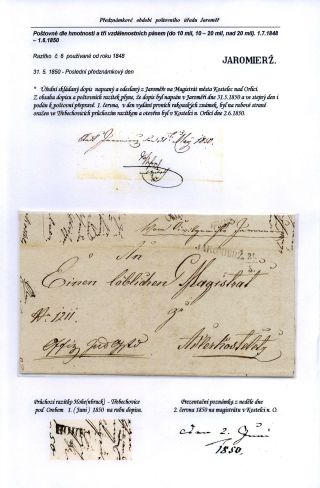 Předznámkové období poštovního úřadu Jaroměř
Poštovné dle hmotnosti a tří vzdělenostních pásem (do 10 mil, 10 – 20 mil, nad 20 mil). 1.7.1848
– 1.6.1850
Razítko č. 6 používané od roku 1848
JAROMIERŽ.
31. 5. 1850 - Poslední předznámkový den
* Úřední skládaný dopis napsaný a odeslaný z Jaroměři na Magistrát města Kostelec nad Orlicí.
Z obsahu dopisu a poštovních razítek plyne, že dopis byl napsán v Jaroměři dne 31.5.1850 a ve stejný den i
podán k poštovní přepravě. 1. června, v den vydání prvních rakouských známek, byl na rubové straně
orazen ve Třebechovicích příchozím razítkem a otevřen byl v Kostelci n. Orlicí dne 2.6.1850.
31 May 1850.
JAROMIERŽ. 31.
An
Einen löblichen Magistrat
zu
No 1211.
Adlerkosteletz
Příchozí razítky Hohe(nbruck) - Třebechovice
pod Orebem 1. ( Juni ) 1850 na rubu dopisu.
Prezentační poznámky z neděle dne
2. června 1850 na magistrátu v Kostelci n. O.
HOHE
den 2. Juni
1850.